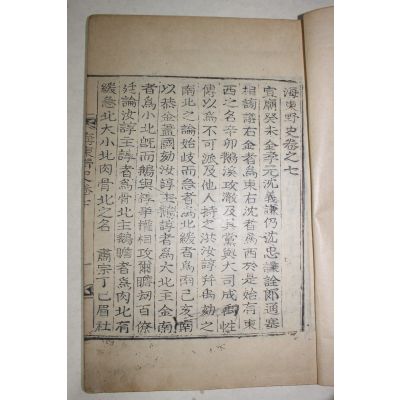 海東野史卷之七
宣廟癸未金孝元沈義謙仍沈忠謙詮郎通塞
相詢諾右金者爲東右沈者爲西於是始有東
西之名辛卯鵝溪攻澈及其黨與大司成禹性
傳以爲不可派及他人持之洪汝諄幷劾之
南北之論始歧而急者爲北緩者爲南己亥南
以恭金藎國劾汝諄主諄者爲大北主金南
者爲小北旣而鵝與諄爭權相攻爾瞻劾百僚
廷論汝諄主諄者爲骨北主鵝瞻者爲肉北有
緩急北大小北肉骨北之名 肅宗丁巳眉社
海東野史卷七